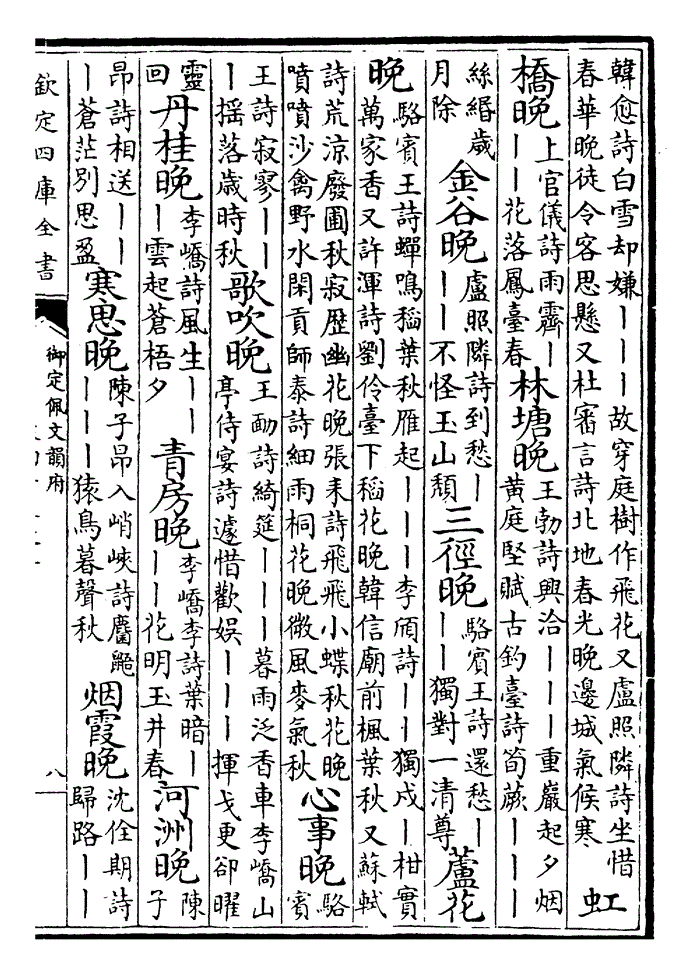 韓愈詩白雪却嫌｜｜｜故穿庭樹作飛花又盧照隣詩坐惜
春華晚徒令容思懸又杜審言詩北地春光晚邊城氣候寒
虹
橋晚
上官儀詩雨霽｜
｜｜花落鳳臺春
林塘晚
王勃詩興洽｜｜｜重巖起夕烟
黃庭堅賦古釣臺詩筍蕨｜｜｜
絲緡歲
月除
金谷晚
盧照隣詩到愁｜
｜｜不怪玉山頹
三徑晚
駱賓王詩還愁｜
｜｜獨對一清尊
蘆花
晚
駱賓王詩蟬鳴稻葉秋雁起｜｜｜李頎詩｜｜獨戍｜柑實
萬家香又許渾詩劉伶臺下稻花晚韓信廟前楓葉秋又蘇軾
詩荒涼廢圃秋寂歷幽花晚張耒詩飛飛小蝶秋花晚
噴噴沙禽野水閑貢師泰詩細雨桐花晚微風麥氣秋
心事晚
駱
賓
王詩寂寥｜｜
｜搖落歲時秋
歌吹晚
王勔詩綺筵｜｜｜暮雨泛香車李嶠山
亭侍宴詩遽惜歡娛｜｜｜揮戈更卻曜
靈
回
丹桂晚
李嶠詩風生｜｜
｜雲起蒼梧夕
青房晚
李嶠李詩葉暗｜
｜｜花明玉井春
河洲晚
陳
子
昂詩相送｜｜
｜蒼茫別思盈
寒思晚
陳子昂入峭峽詩麏鼯
｜｜｜猿鳥暮聲秋
烟霞晚
沈佺期詩
歸路｜｜
欽定四庫全書
御定佩文韻府
八